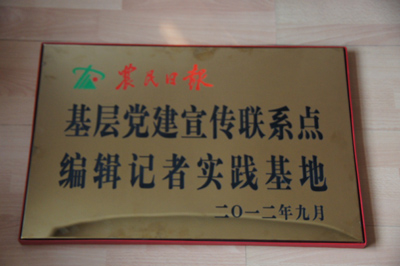 农民日报
基层党建宣传联系点
编辑记者实践基地
二〇一二年九月